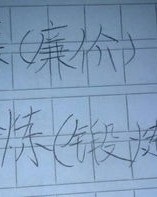 (廉价)
炼(锻